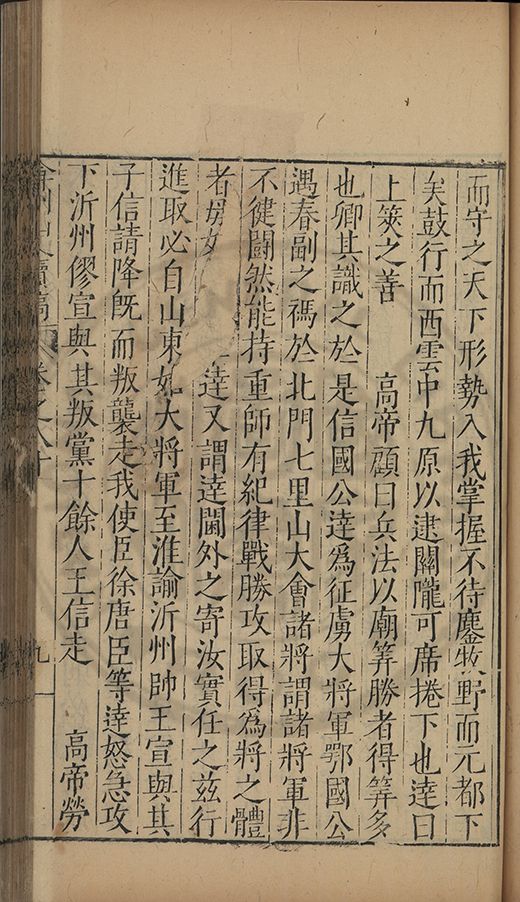 而守之天下形勢入我掌握不待鏖牧野而元都下
矣鼓行而西雲中九原以逮關隴可席捲下也達曰
上筴之善 高帝顧曰兵法以廟筭勝者得筭多
也卿其識之於是信國公達爲征虜大將軍鄂國公
遇春副之禡於北門七里山大會諸將謂諸將軍非
不健鬬然能持重師有紀律戰勝攻取得爲將之體
者毋如 達又謂達閫外之寄汝實任之茲行
進取必自山東始大將軍至淮諭沂州帥王宣與其
子信請降旣而叛襲走我使臣徐唐臣等達怒急攻
下沂州僇宣與其叛黨十餘人王信走 高帝勞
續稿 卷之八十 九